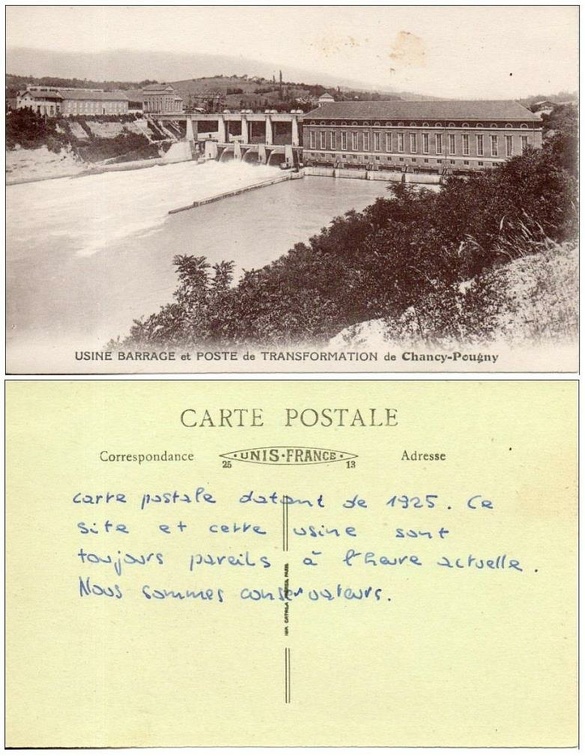 USINE BARRAGE et POSTE de TRANSFORMATION de Chancy-Pougny
CARTE POSTALE
Correspondance
UNIS-FRANCE
25 13
Adresse
carte postale datant de 1925. Ce
site et cette usine sont
toujours pareils à l'heure actuelle.
Nous sommes conservateurs.
PARIS